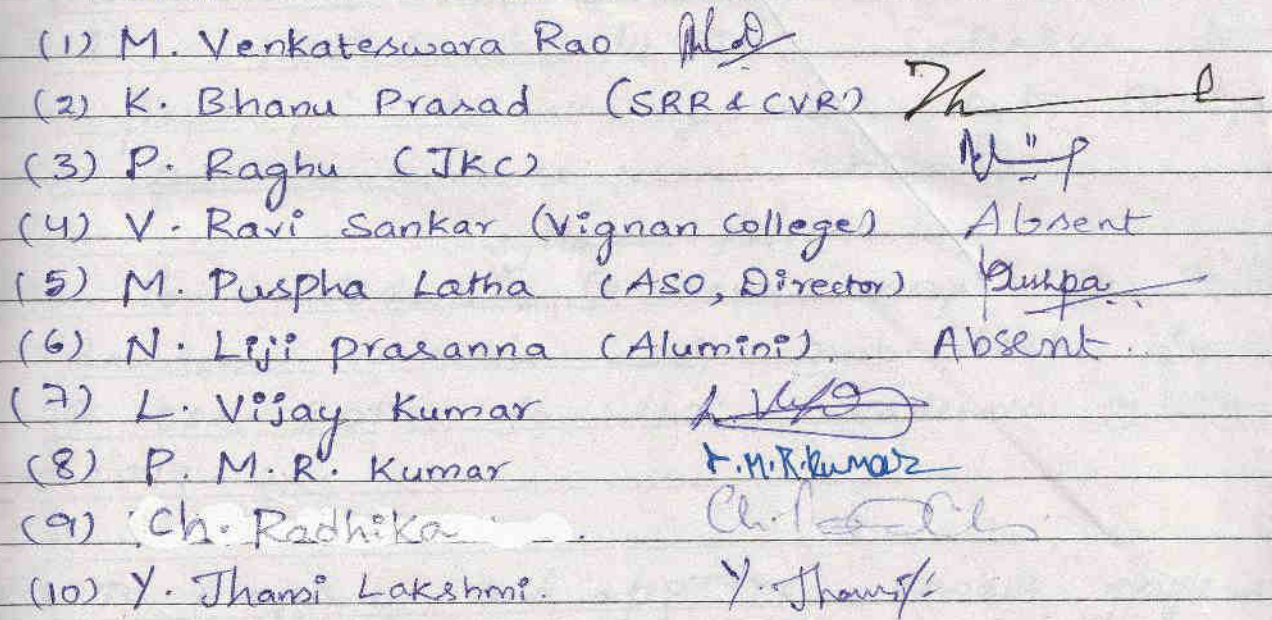 (1) M. Venkateswara Rao
(2) K. Bhanu Prasad (SRR & CVR)
(3) P. Raghu (JKC)
(4) V. Ravi Sankar (Vignan College) Absent
(5) M. Puspha Latha (ASO, Director) Pushpa
(6) N. Liji prasanna (Alumini). Absent.
(7) L. Vijay Kumar
(8) P. M. R. Kumar P.M.R.Kumar
(9) Ch. Radhika
(10) Y. Jhansi Lakshmi. Y. Jhansi